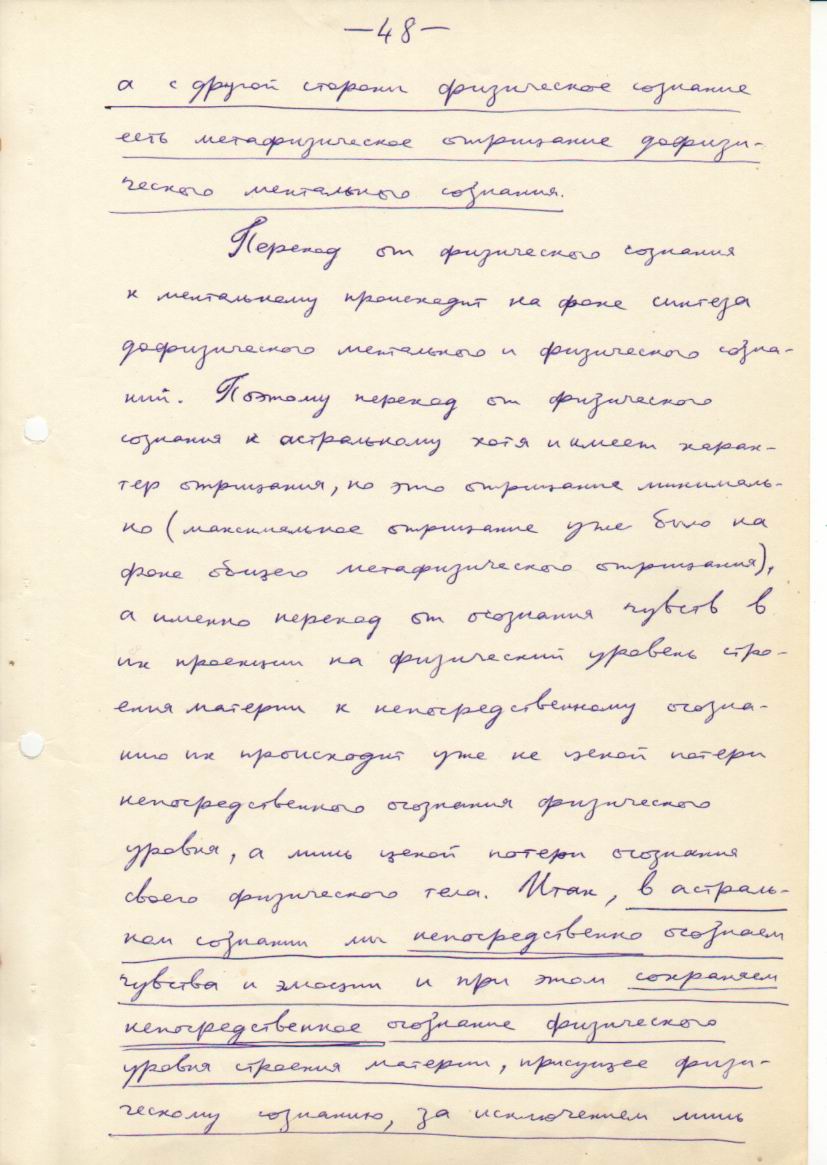 —48—
а с другой стороны физическое сознание
есть метафизическое отрицание дофизи-
ческого ментального сознания.
Переход от физического сознания
к ментальному происходит на фоне синтеза
дофизического ментального и физического созна-
ний. Поэтому переход от физического
сознания к астральному хотя и имеет харак-
тер отрицания, но это отрицание минималь-
но (максимальное отрицание уже было на
фоне общего метафизического отрицания),
а именно переход от осознания чувств в
их проекции на физический уровень стро-
ения материи к непосредственному осозна-
нию их происходит уже не ценой потери
непосредственного осознания физического
уровня, а лишь ценой потери осознания
своего физического тела. Итак, в астраль-
ном сознании мы непосредственно осознаем
чувства и эмоции и при этом сохраняем
непосредственное осознание физического
уровня строения материи, присущее физи-
ческому сознанию, за исключением лишь